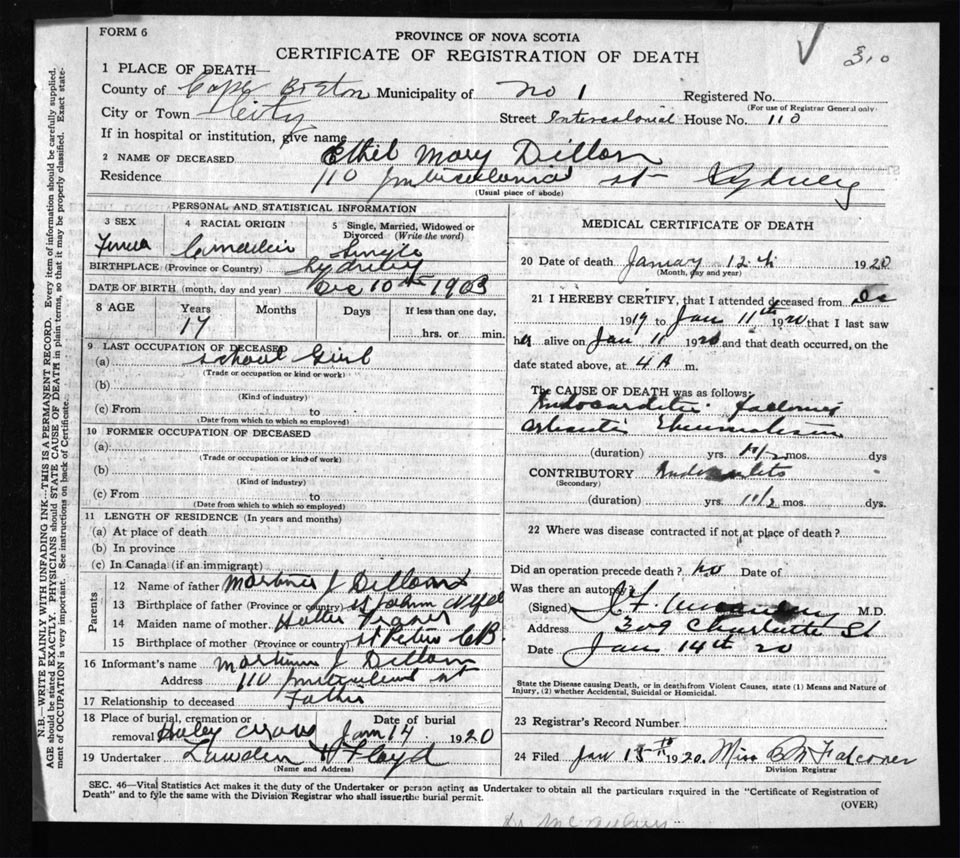 FORM 6
PROVINCE OF NOVA SCOTIA
CERTIFICATE OF REGISTRATION OF DEATH
310
1 PLACE OF DEATH—
County of Cape Breton Municipality of No 1 Registered No.
(For use of Registrar General only)
City or Town City Street Intercolonial House No. 110
If in hospital or institution, give name
2 NAME OF DECEASED Ethel Mary Dillon
Residence 110 Intercolonial st Sydney
(Usual place of abode)
PERSONAL AND STATISTICAL INFORMATION
3 SEX 4 RACIAL ORIGIN 5 Single, Married, Widowed or Divorced (Write the word)
Single
BIRTHPLACE (Province or Country) Sydney
DATE OF BIRTH (month, day and year) Dec 10th 1903
8 AGE Years Months Days If less than one day,
17 hrs. or min.
9 LAST OCCUPATION OF DECEASED
(a) School Girl
(Trade or occupation or kind or work)
(b)
(Kind of industry)
(c) From to
(Date from which to which so employed)
10 FORMER OCCUPATION OF DECEASED
(a)
(Trade or occupation or kind of work)
(b)
(Kind of industry)
(c) From to
(Date from which to which so employed)
11 LENGTH OF RESIDENCE (In years and months)
(a) At place of death
(b) In province
(c) In Canada (if an immigrant)
Parents
12 Name of father J Dillon
13 Birthplace of father (Province or country) St John Nfld
14 Maiden name of mother
15 Birthplace of mother (Province or country) St Peters C.B.
16 Informant's name J Dillon
Address 110 st
17 Relationship to deceased Father
18 Place of burial, cremation or Date of burial
removal Holy Cross Jan 14 1920
19 Undertaker Lowden H Floyd
(Name and Address)
MEDICAL CERTIFICATE OF DEATH
20 Date of death January 12th 1920
(Month, day and year)
21 I HEREBY CERTIFY, that I attended deceased from
1919 to Jan 11th 1920 that I last saw
her alive on Jan 11 1920 and that death occurred, on the
date stated above, at 4 A m.
The CAUSE OF DEATH was as follows:
Endocarditis following
Rheumatism
(duration) yrs. 1 1/2 mos. dys
CONTRIBUTORY
(Secondary)
(duration) yrs. 1 1/2 mos. dys.
22 Where was disease contracted if not at place of death ?
Did an operation precede death ? no Date of
Was there an autopsy
(Signed) M.D.
Address 309 Charlotte St
Date Jan 14th 20
State the Disease causing Death, or in death from Violent Causes, state (1) Means and Nature of
Injury, (2) whether Accidental, Suicidal or Homicidal.
23 Registrar's Record Number
24 Filed Jan 15th 1920. Miss Falconer
Division Registrar
SEC. 46—Vital Statistics Act makes it the duty of the Undertaker or person acting as Undertaker to obtain all the particulars required in the "Certificate of Registration of
Death" and to fyle the same with the Division Registrar who shall issue the burial permit.
(OVER)
N.B.—WRITE PLAINLY WITH UNFADING INK—THIS IS A PERMANENT RECORD. Every item of information should be carefully supplied.
AGE should be stated EXACTLY. PHYSICIANS should STATE CAUSE OF DEATH in plain terms, so that it may be properly classified. Exact state-
ment of OCCUPATION is very important. See instructions on back of Certificate.